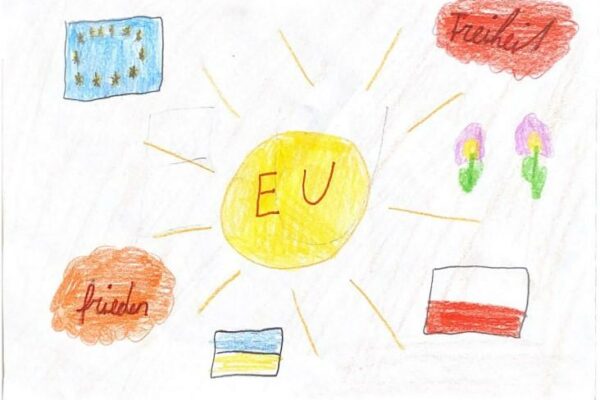 Freiheit
EU
frieden